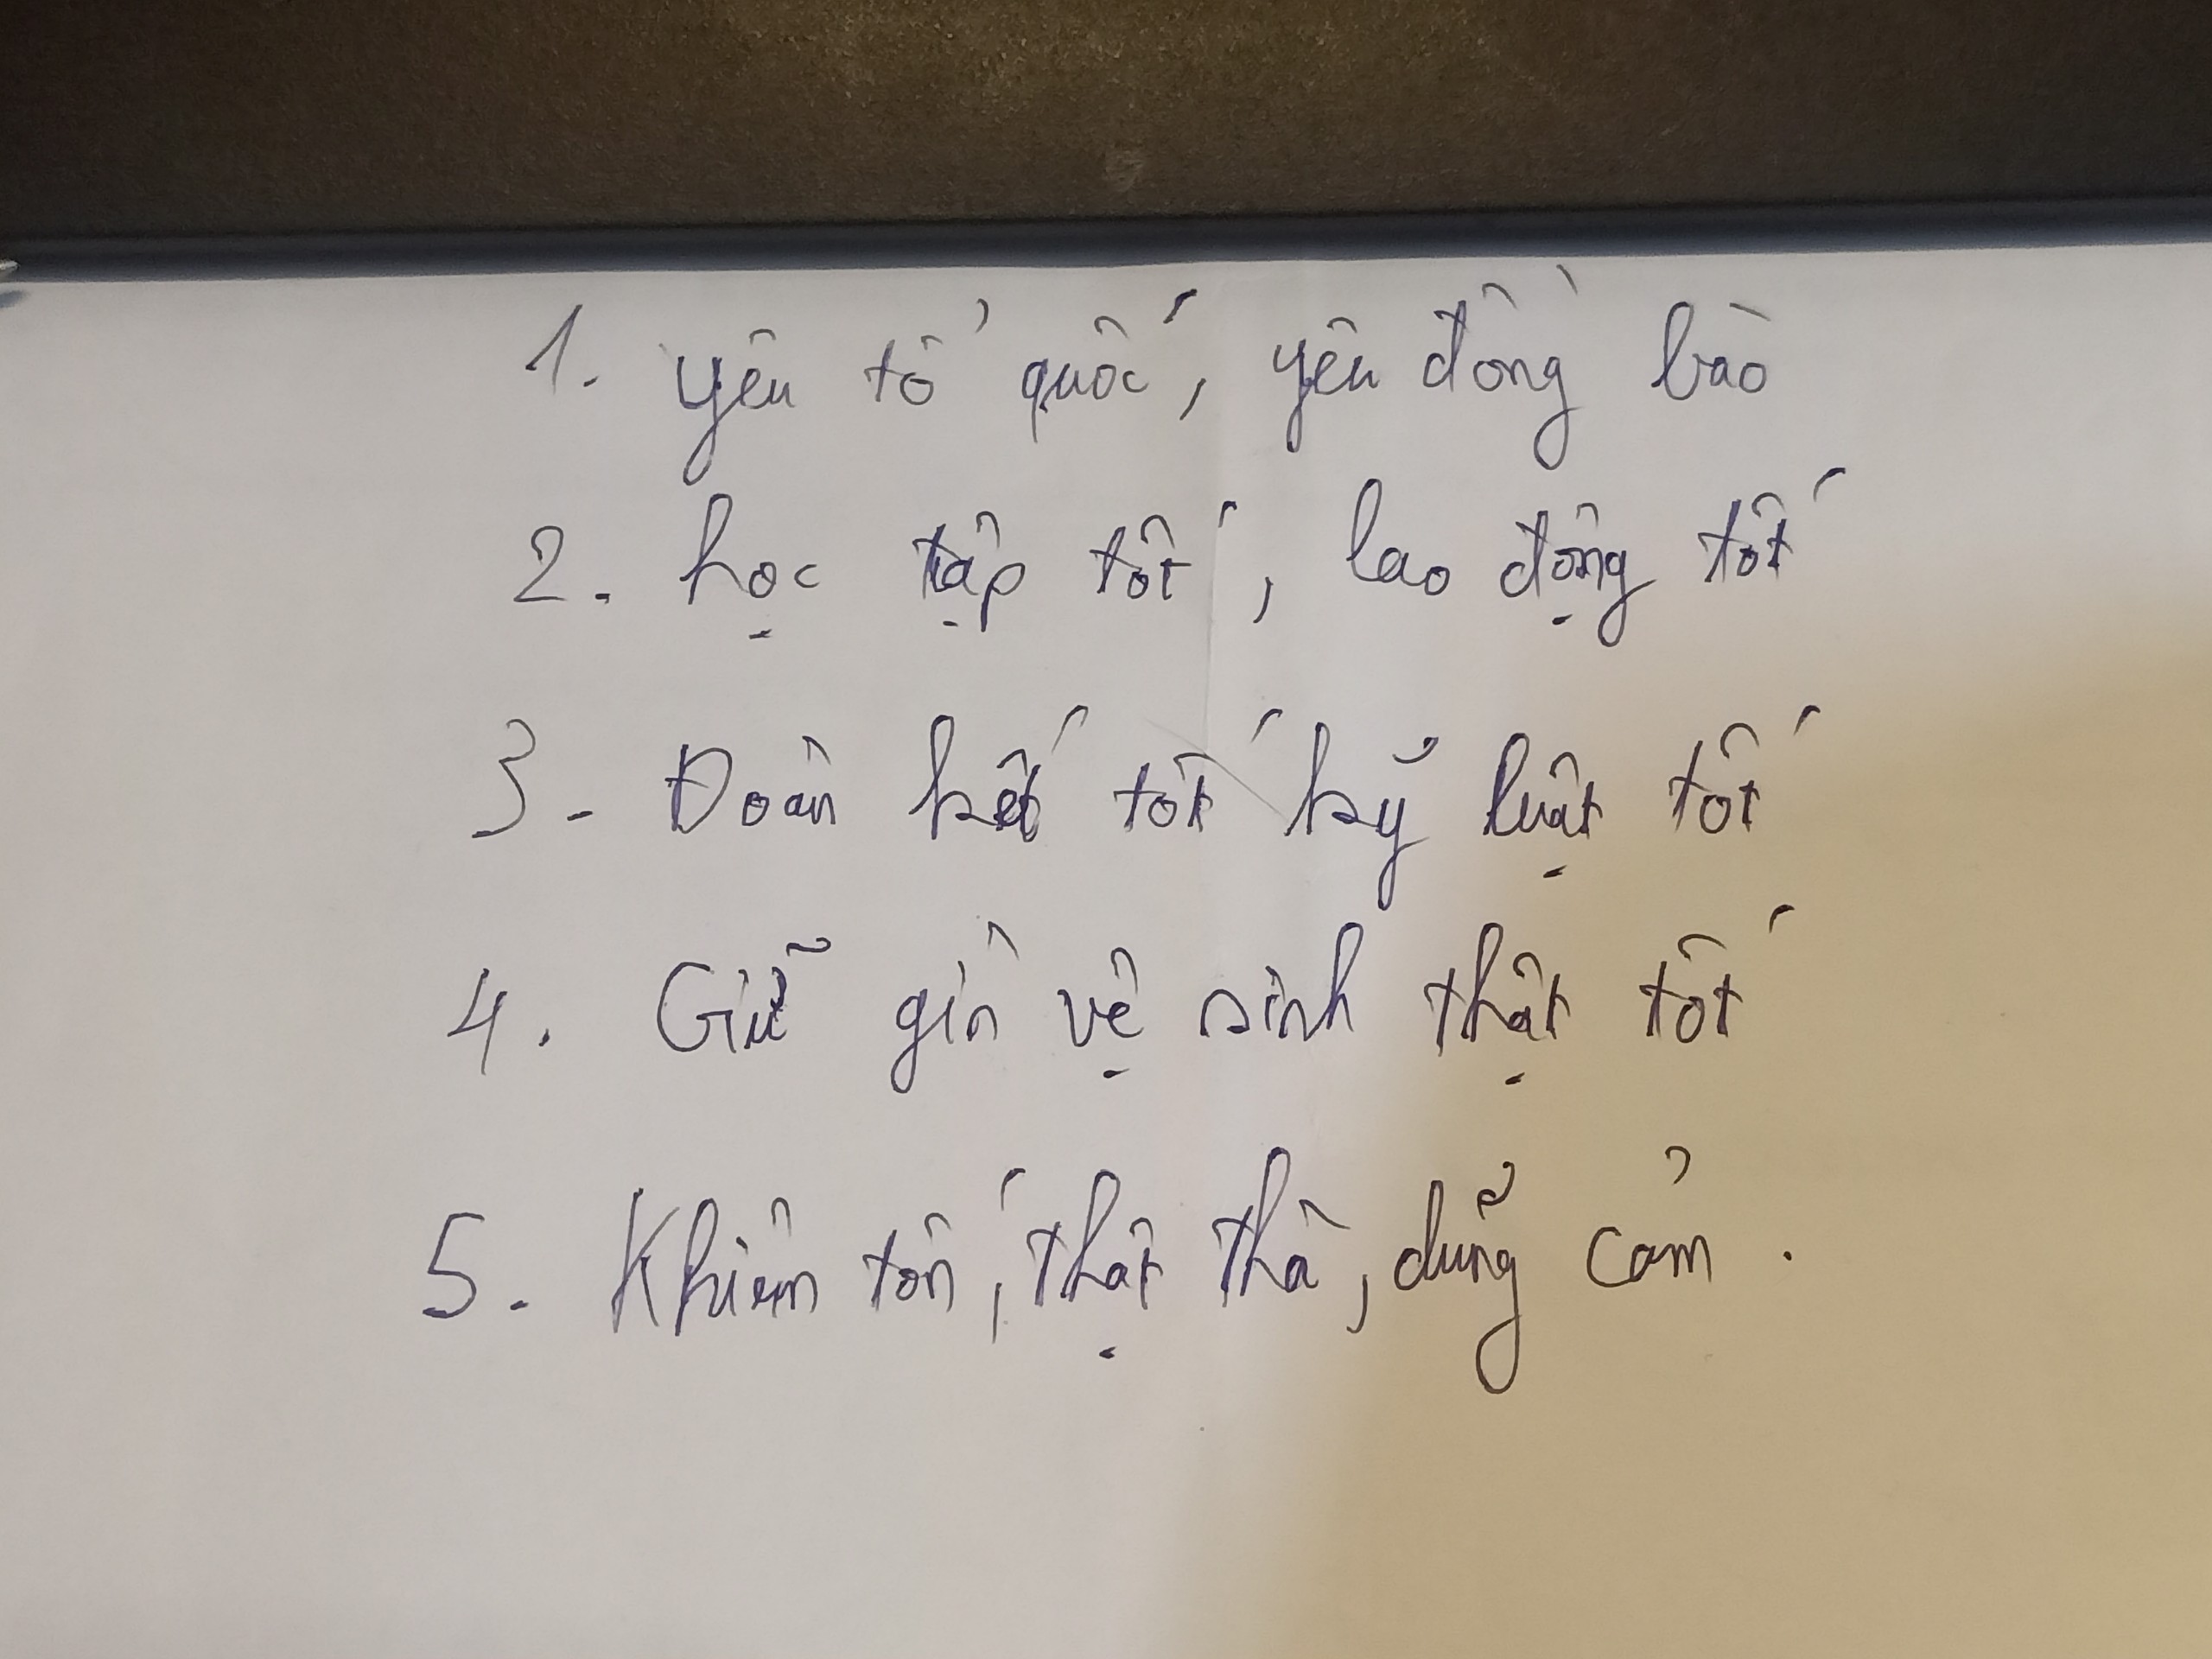 1. yêu tổ quốc, yêu đồng bào
2. học tập tốt, lao động tốt
3. Đoàn kết tốt kỷ luật tốt
4. Giữ gìn vệ sinh thật tốt
5. Khiêm tốn, thật thà, dũng cảm.